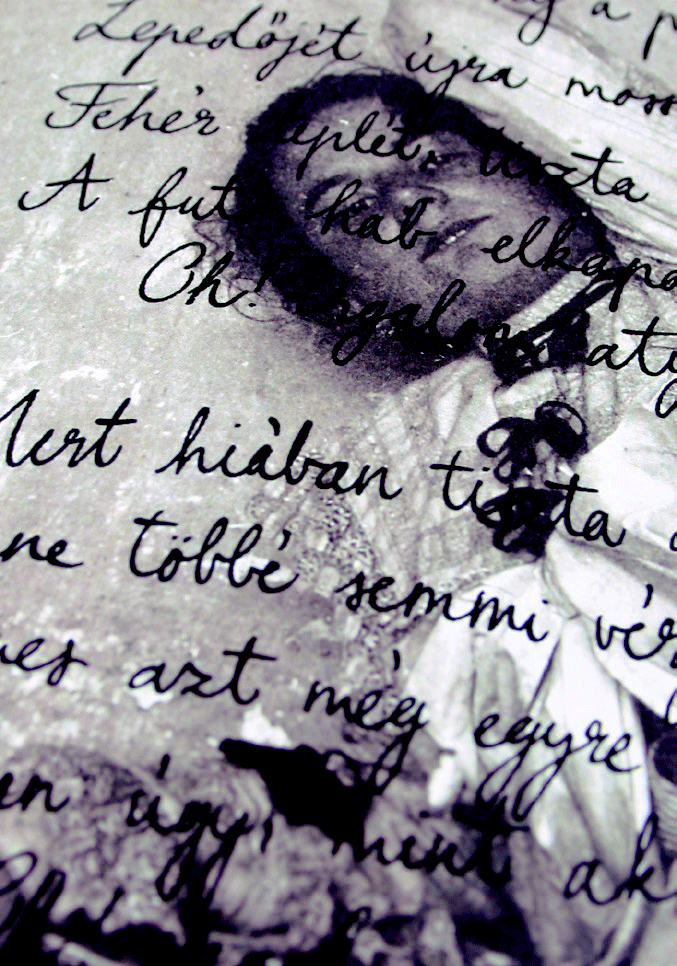 a p
Lepedőjét újra moss
Fehér leplét, tiszta
A futó hab elkapa
Oh! irgalom aty
Mert hiában tiszta a
ne többé semmi vér
nes azt még egyre
en úgy, mint ak